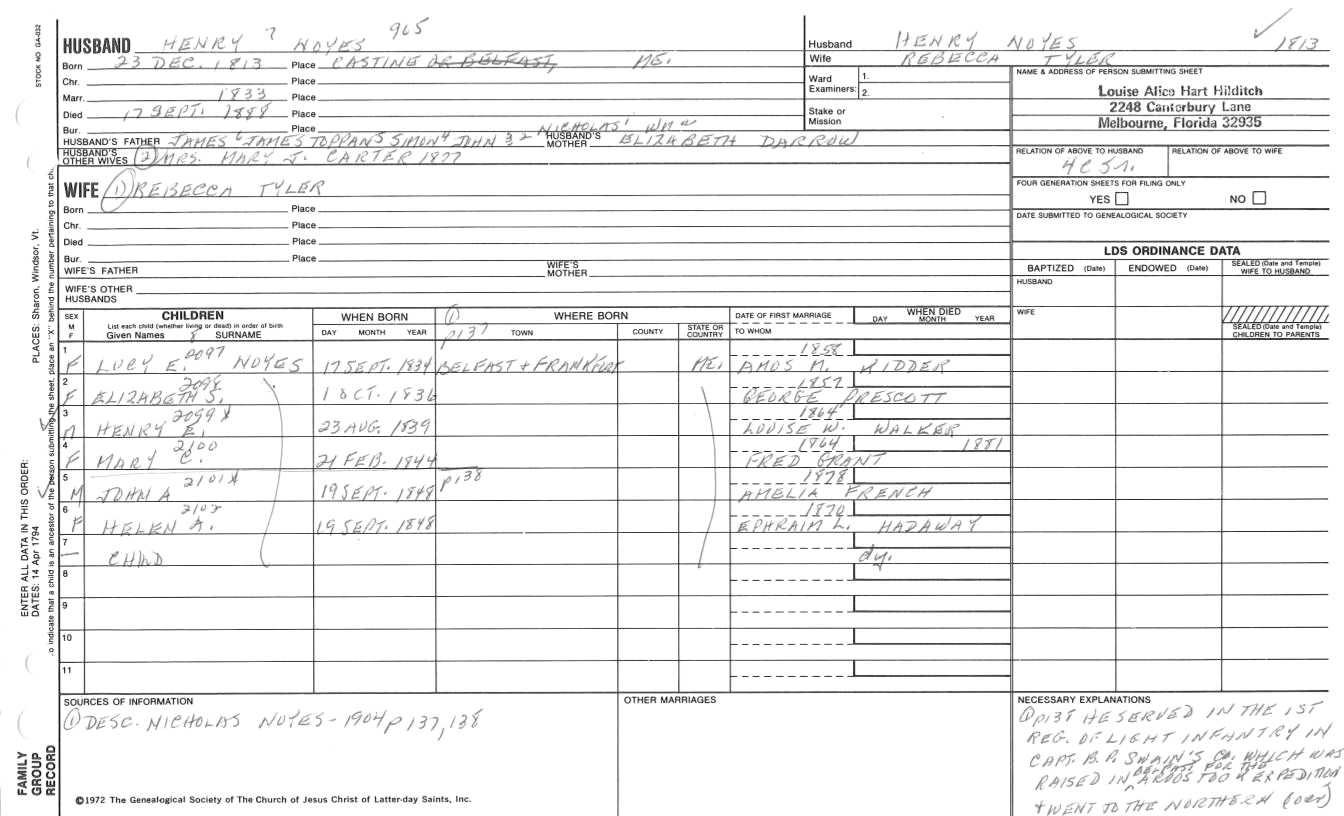 STOCK NO GA-032
965
HUSBAND HENRY 7 NOYES
Born 23 DEC. 1813 Place CASTINE OR BELFAST, ME.
Chr. Place
Marr. 1833 Place
Died 17 SEPT. 1888 Place
Bur. Place
HUSBAND'S FATHER JAMES 6 JAMES TOPPAN 5 SIMON 4 JOHN 3 2 NICHOLAS 1 WM HUSBAND'S MOTHER ELIZABETH DARROW
HUSBAND'S OTHER WIVES (2) MRS. MARY J. CARTER 1877
Husband HENRY NOYES 1813
Wife REBECCA TYLER
Ward Examiners: 1. 2.
Stake or Mission
NAME & ADDRESS OF PERSON SUBMITTING SHEET
Louise Alice Hart Hilditch
2248 Canterbury Lane
Melbourne, Florida 32935
RELATION OF ABOVE TO HUSBAND RELATION OF ABOVE TO WIFE
4C 5r.
FOUR GENERATION SHEETS FOR FILING ONLY
YES NO
DATE SUBMITTED TO GENEALOGICAL SOCIETY
WIFE (1) REBECCA TYLER
Born Place
Chr. Place
Died Place
Bur. Place
WIFE'S FATHER WIFE'S MOTHER
WIFE'S OTHER HUSBANDS
LDS ORDINANCE DATA
BAPTIZED (Date) ENDOWED (Date) SEALED (Date and Temple) WIFE TO HUSBAND
HUSBAND
WIFE
SEALED (Date and Temple) CHILDREN TO PARENTS
SEX M F CHILDREN WHEN BORN (1) WHERE BORN DATE OF FIRST MARRIAGE WHEN DIED
List each child (whether living or dead) in order of birth
Given Names SURNAME DAY MONTH YEAR p137 TOWN COUNTY STATE OR COUNTRY TO WHOM DAY MONTH YEAR
1 F LUCY E. 2097 NOYES 17 SEPT. 1834 BELFAST + FRANKFORT ME. 1858 AMOS M. KIDDER
2 F ELIZABETH S. 2098 1 OCT. 1836 1857 GEORGE PRESCOTT
3 M HENRY E. 2099 X 23 AUG. 1839 1864 LOUISE W. WALKER
4 F MARY C. 2100 21 FEB. 1844 1864 FRED GRANT 1881
5 M JOHN A 2101 X 19 SEPT. 1848 p138 1878 AMELIA FRENCH
6 F HELEN A. 2102 19 SEPT. 1848 1870 EPHRAIM L. HADAWAY
7 — CHILD dy.
8
9
10
11
SOURCES OF INFORMATION
(1) DESC. NICHOLAS NOYES - 1904 p 137, 138
OTHER MARRIAGES
NECESSARY EXPLANATIONS
(1) p138 HE SERVED IN THE 1ST
REG. OF LIGHT INFANTRY IN
CAPT. B. P. SWAIN'S CO. WHICH WAS
RAISED IN BELFAST FOR THE AROOSTOOK EXPEDITION
+ WENT TO THE NORTHERN (over)
PLACES: Sharon, Windsor, Vt.
ENTER ALL DATA IN THIS ORDER:
DATES: 14 Apr 1794
to indicate that a child is an ancestor of the person submitting the sheet, place an "X" behind the number pertaining to that ch
FAMILY GROUP RECORD
©1972 The Genealogical Society of The Church of Jesus Christ of Latter-day Saints, Inc.